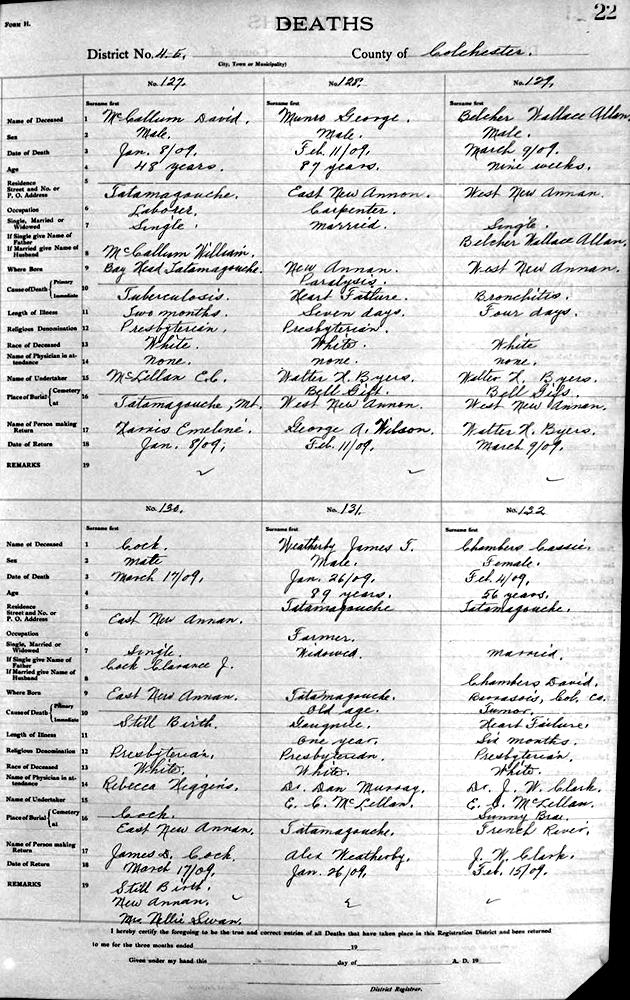 Form H.
DEATHS
22
District No. 4-E, County of Colchester.
(City, Town or Municipality)
No. 127. No. 128. No. 129.
Surname first Surname first Surname first
Name of Deceased 1 McCallum David. Munro George. Belcher Wallace Allan
Sex 2 Male. Male. Male.
Date of Death 3 Jan. 8/09. Feb. 11/09. March 9/09.
Age 4 48 years. 87 years. Nine weeks.
Residence Street and No. or P. O. Address 5 Tatamagouche. East New Annan. West New Annan
Occupation 6 Laborer. Carpenter.
Single, Married or Widowed 7 Single. Married. Single.
If Single give Name of Father
If Married give Name of Husband 8 McCallum William. Belcher Wallace Allan.
Where Born 9 Bay Head Tatamagouche. New Annan. West New Annan.
Cause of Death Primary Immediate 10 Tuberculosis. Paralysis Heart Failure. Bronchitis.
Length of Illness 11 Two months. Seven days. Four days.
Religious Denomination 12 Presbyterian. Presbyterian.
Race of Deceased 13 White. White. White
Name of Physician in attendance 14 None. none. none.
Name of Undertaker 15 McLellan E.C. Walter X. Byers. Walter X. Byers.
Place of Burial Cemetery at 16 Tatamagouche, Mt. Bell Gift. West New Annan. Bell Gifs. West New Annan.
Name of Person making Return 17 Emeline. George A. Wilson. Walter X. Byers.
Date of Return 18 Jan. 8/09. Feb. 11/09. March 9/09.
REMARKS 19
No. 130. No. 131. No. 132
Surname first Surname first Surname first
Name of Deceased 1 Cock. Weatherby James T. Chambers Cassie.
Sex 2 Male Male. Female.
Date of Death 3 March 17/09. Jan. 26/09. Feb. 4/09.
Age 4 89 years. 56 years.
Residence Street and No. or P. O. Address 5 East New Annan. Tatamagouche Tatamagouche.
Occupation 6 Farmer.
Single, Married or Widowed 7 Single. Widowed. Married.
If Single give Name of Father Cock Clarance J.
If Married give Name of Husband 8 Chambers David.
Where Born 9 East New Annan. Tatamagouche. Col. Co.
Cause of Death Primary Immediate 10 Still Birth. Old age. Tumor. Heart Failure.
Length of Illness 11 One year. Six months.
Religious Denomination 12 Presbyterian. Presbyterian. Presbyterian.
Race of Deceased 13 White. White. White.
Name of Physician in attendance 14 Rebecca Higgins. Dr. Dan Murray. Dr. J. W. Clark.
Name of Undertaker 15 E. C. McLellan. E. C. McLellan.
Place of Burial Cemetery at 16 Cock. East New Annan. Tatamagouche. Sunny Brae. French River.
Name of Person making Return 17 James D. Cock. Alex Weatherby. J. W. Clark.
Date of Return 18 March 17/09. Jan. 26/09. Feb. 15/09.
REMARKS 19 Still Birth.
New Annan.
Mrs Nellie Swan.
I hereby certify the foregoing to be the true and correct entries of all Deaths that have taken place in this Registration District and been returned
to me for the three months ended 19
Given under my hand this day of A. D. 19
District Registrar.